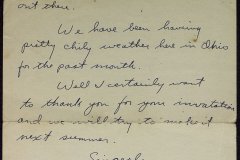 out there.
We have been having
pretty chily weather here in Ohio
for the past month.
Well I certainly want
to thank you for your invatation
and we will try to make it
next summer.
Sincerely